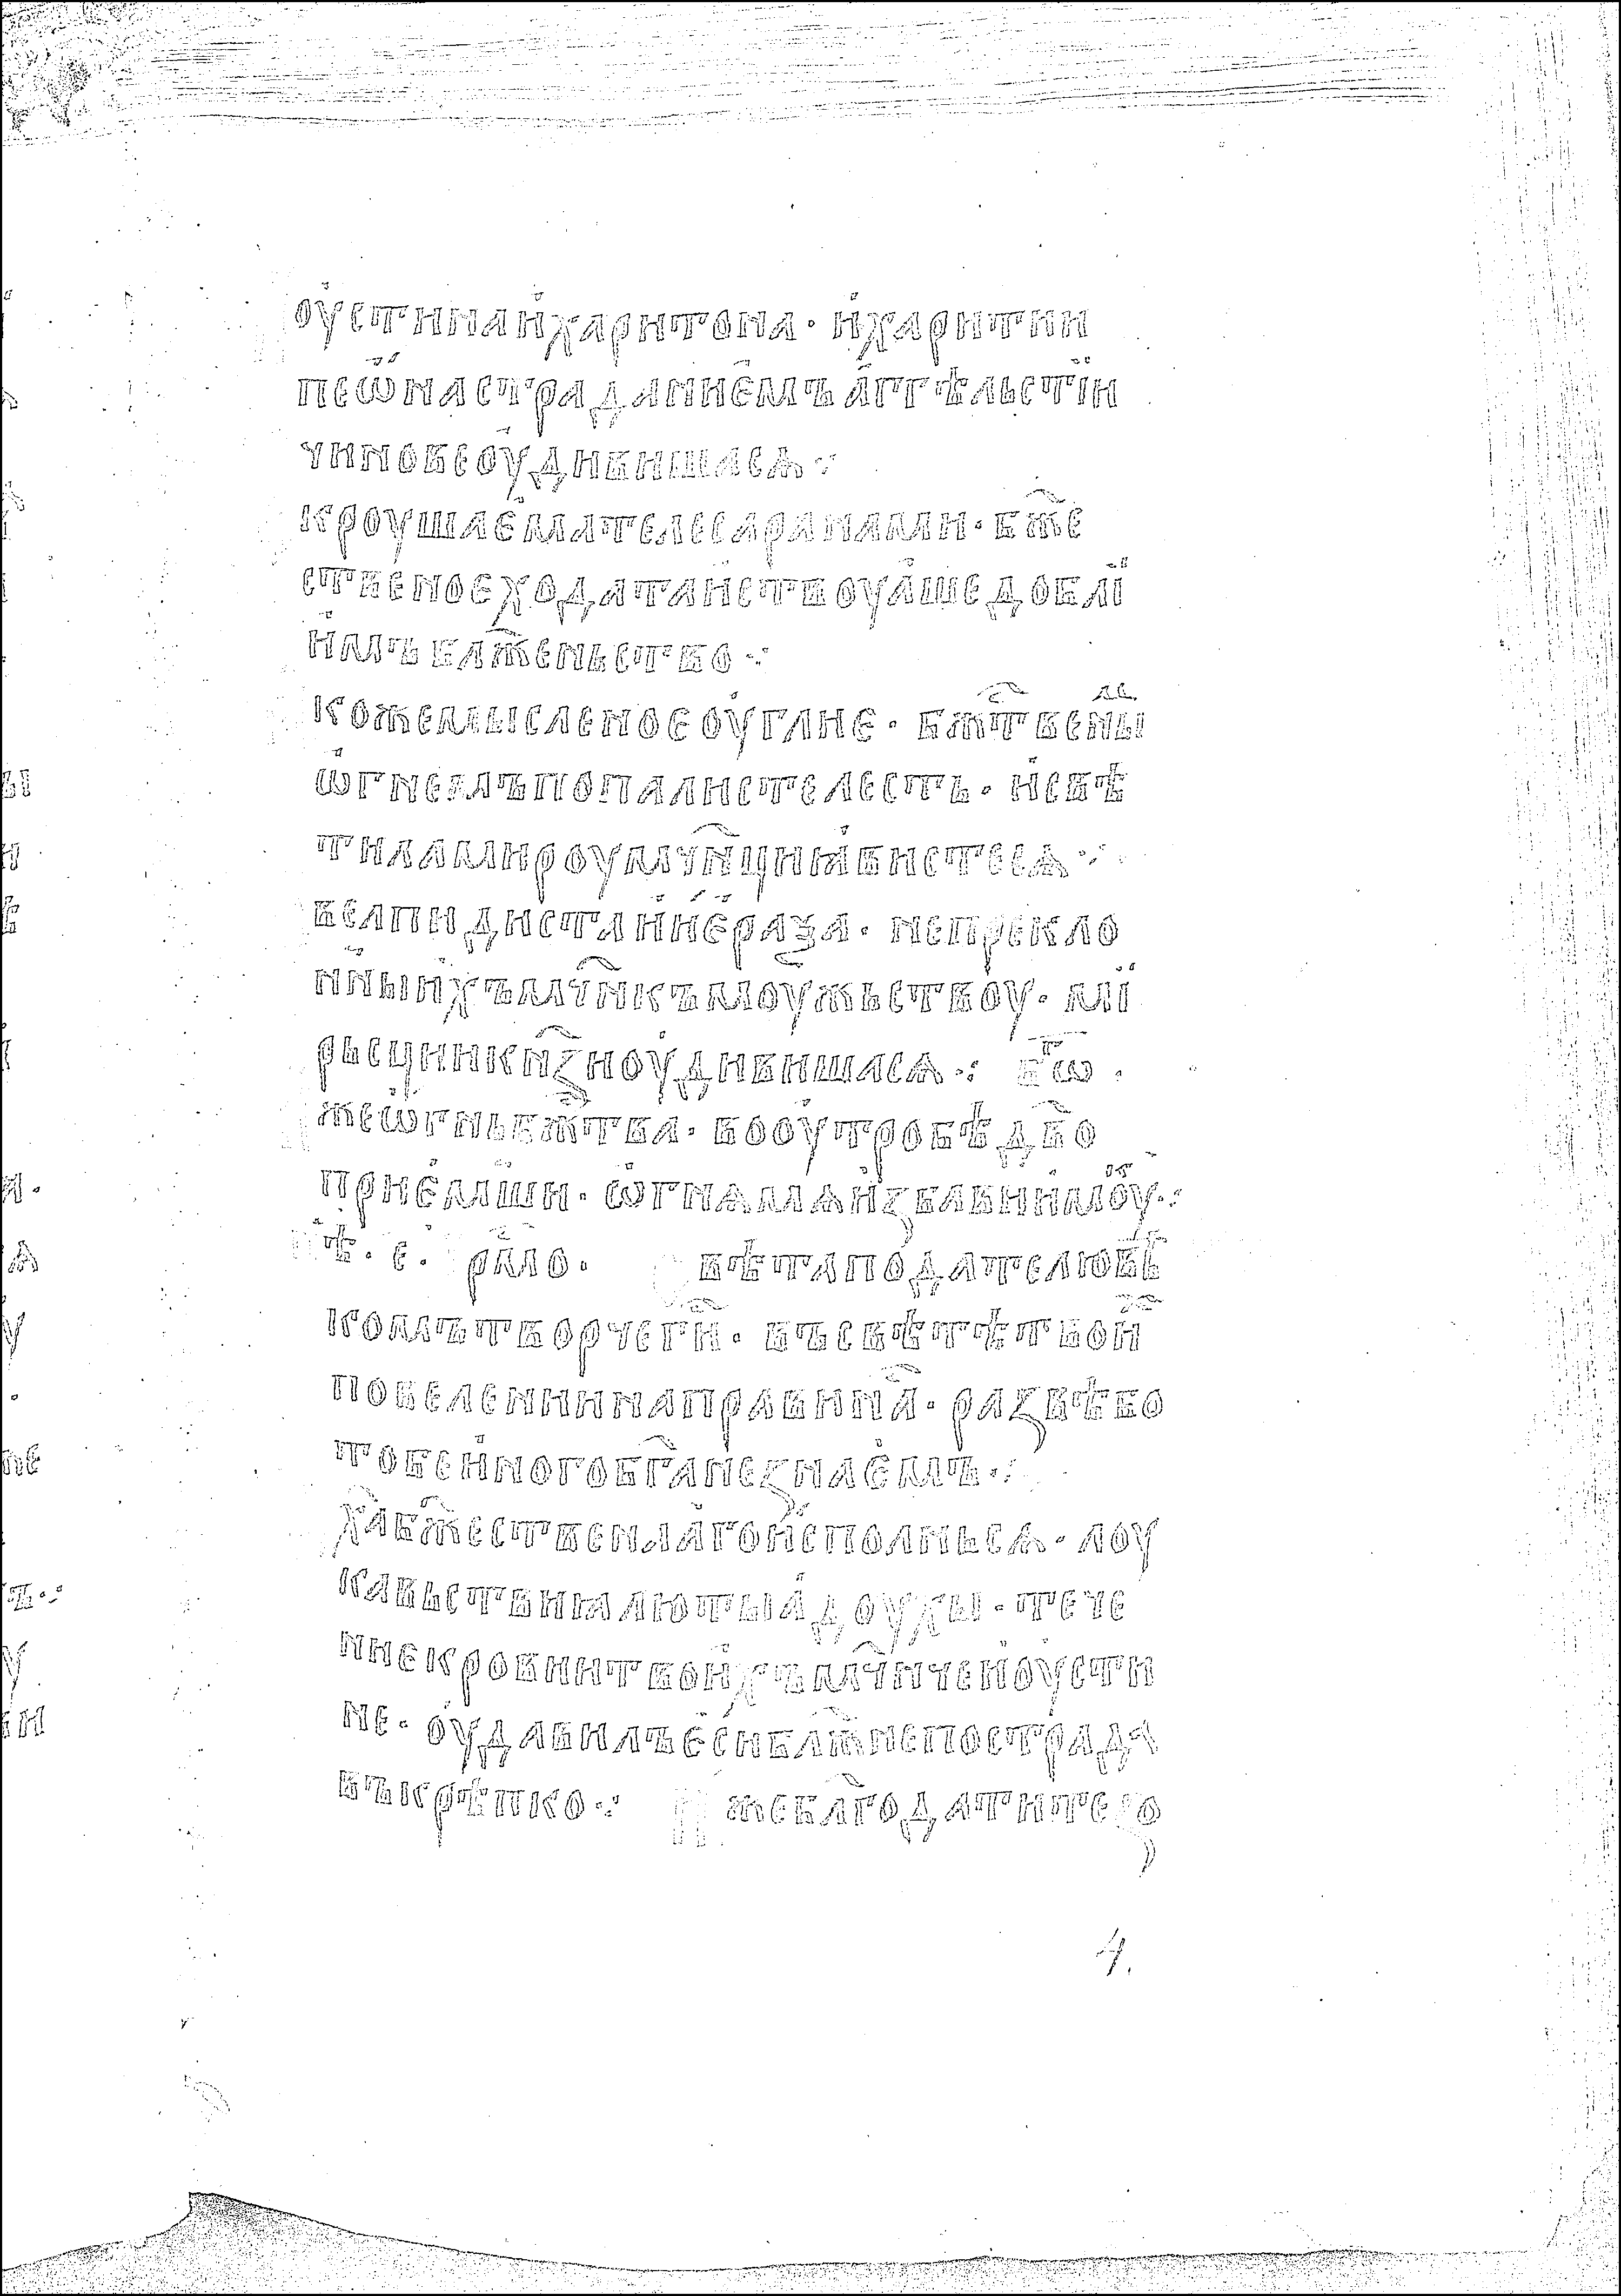 оустинаихаритона· ихаритии
пеѡнастраданиемъ аггѣльстіи
чинове оудивишасѧ⁘
кроушаемателесаранами· бж҃е
ственоеходатаиствоуашедоблі
имъ блж҃еньство⁘
кожемысленоеоугліе· бж҃твены
ѡгнемъпопалистелесть· исвѣ
тиламироумч҃нциꙗвистесѧ⁘
велпидистаниераза· непрекло
нныихъмч҃нкъмоужьствоу· мі
рьсциикнѧзиоудивишасѧ⁘ б҃ѡ·
жеѡгньбж҃тва· вооутробѣдв҃о
приемши· ѡгнѧмѧизбавиимоу⁘
пѣ· е· рамо· свѣтаподателювѣ
комътворчеги· въсвѣтѣтвои
повелениинаправинꙗ҃· развѣбо
тобеиногобг҃анезнаемъ⁘
хв҃абж҃ественаагоисполньсѧ· лоу
кавьствиꙗлютыꙗдоухы· тече
ниекровиитвоихъмч҃нчеиоусти
не· оудавилъесиблж҃непострада
въкрѣпко⁘ пжеблагодатитезо
4.